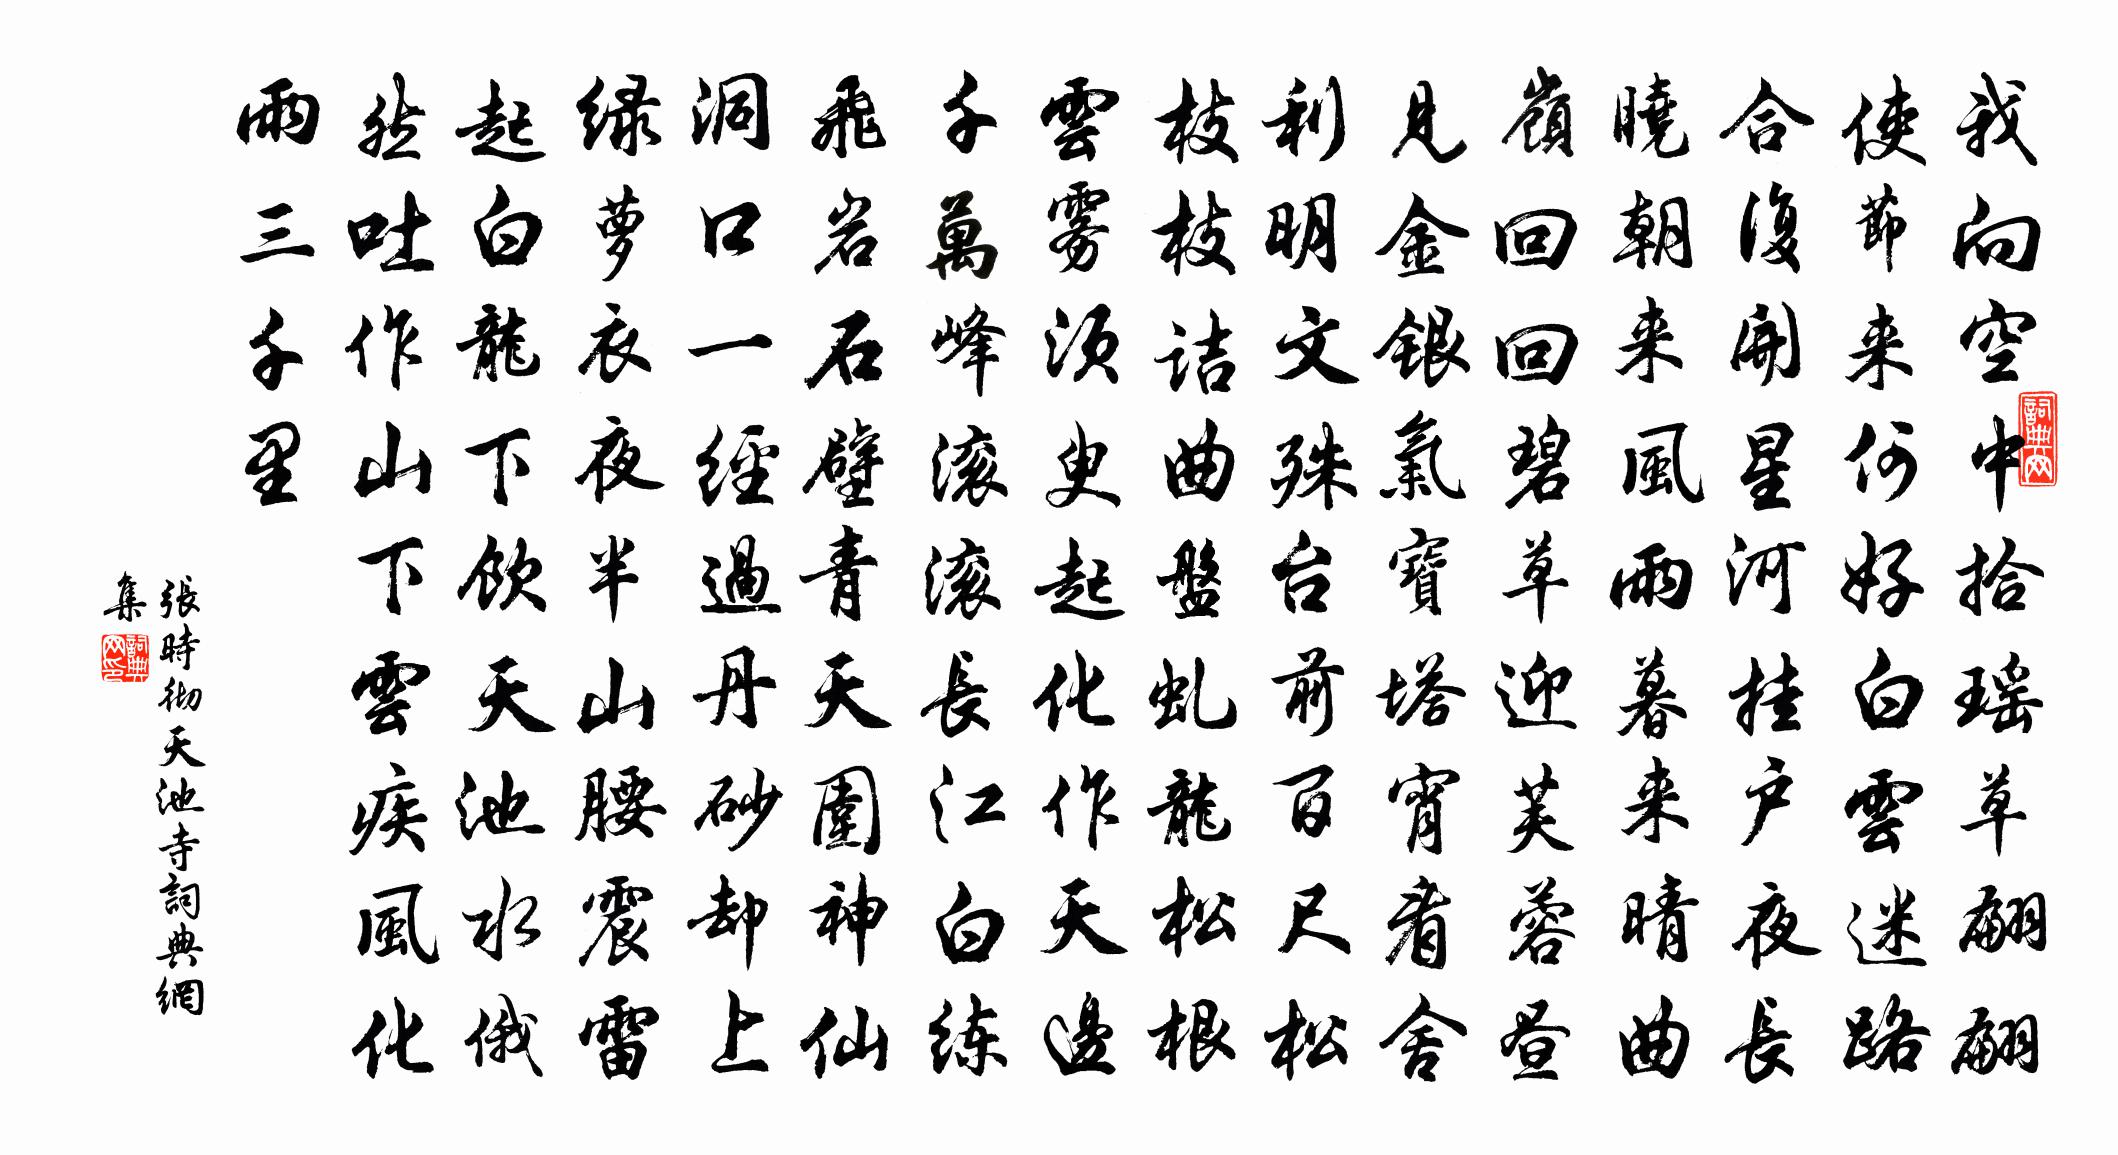 我向空中拾瑶草翩翩
使節来何好白雲迷路
合復開星河挂户夜長
曉朝来風雨暮来晴曲
嶺回回碧草迎芙蓉昼
見金銀氣寶塔宵看舍
利明文殊台前百尺松
枝枝詰曲盤虬龍松根
雲雾須臾起化作天邊
千萬峰滚滚長江白练
飛岩石壁青天圍神仙
洞口一經過丹砂却上
绿萝衣夜半山腰震雷
起白龍下飲天池水俄
然吐作山下雲疾風化
雨三千里
張時彻天池寺詞典網
集
詞典网
詞典网印